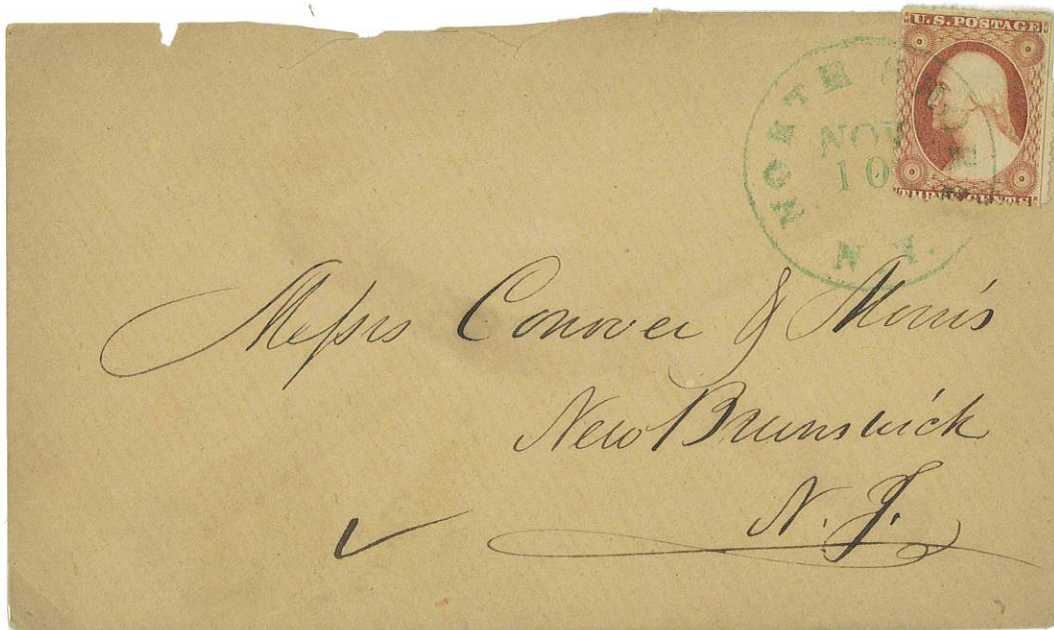 U.S. POSTAGE
THREE CENTS
NORTH
NOV
10
N.Y.
Messrs Conover & Morris
New Brunswick
N. J.